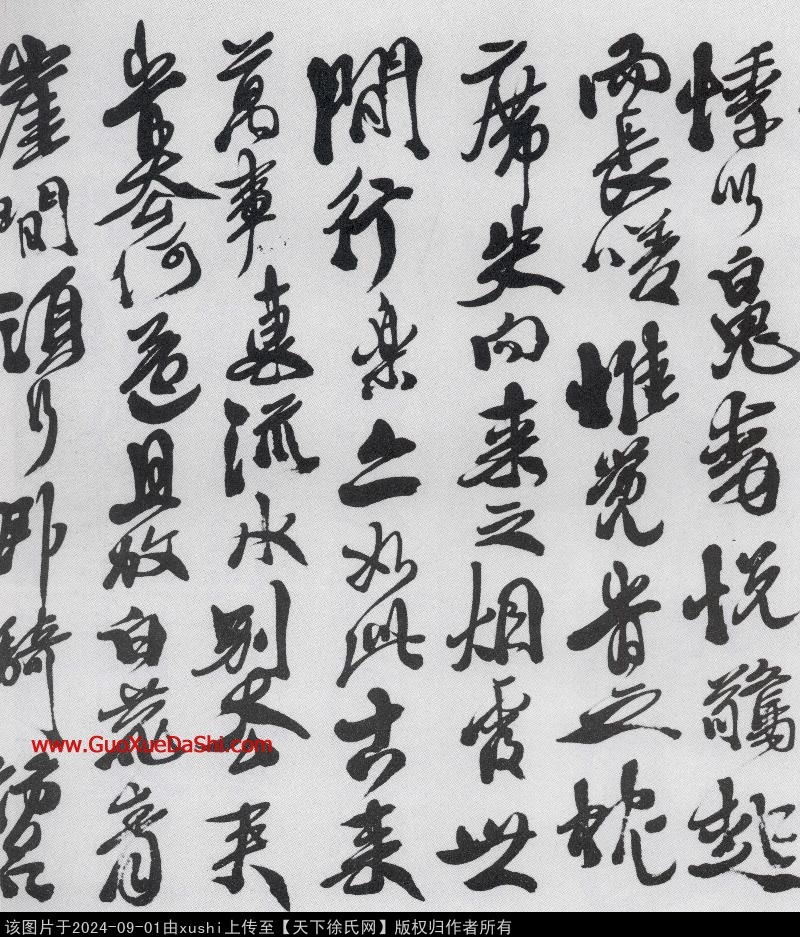 悸以魄動怳驚起
而長嗟惟覺時之枕
席失向來之烟霞世
間行樂亦如此古來
萬事流水別
時何還且放白鹿青
崖間須行即騎訪名
www.GuoXueDaShi.com
该图片于2024-09-01由xushi上传至【天下徐氏网】版权归作者所有